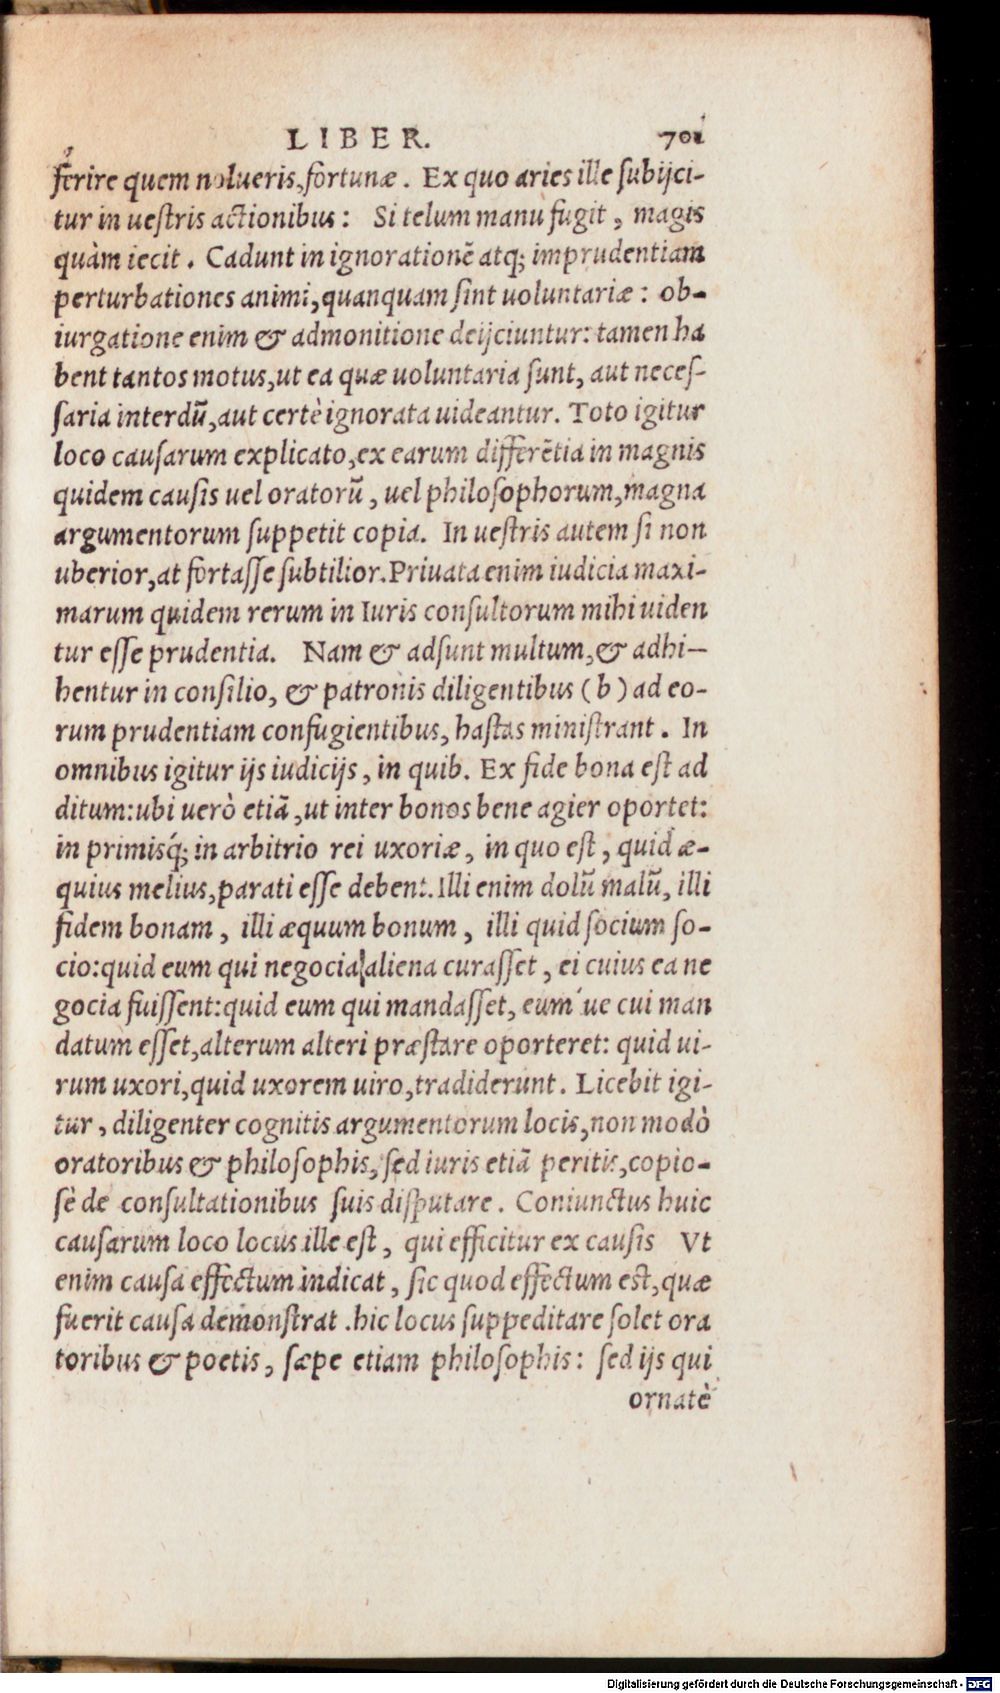 LIBER. 701
ferire quem nolueris, fortunæ. Ex quo aries ille subijci-
tur in uestris actionibus: Si telum manu fugit, magis
quàm iecit. Cadunt in ignorationẽ atq; imprudentiam
perturbationes animi, quanquam sint uoluntariæ: ob-
iurgatione enim & admonitione deijciuntur: tamen ha
bent tantos motus, ut ea quæ uoluntaria sunt, aut neces-
saria interdũ, aut certè ignorata uideantur. Toto igitur
loco causarum explicato, ex earum differẽtia in magnis
quidem causis uel oratorũ, uel philosophorum, magna
argumentorum suppetit copia. In uestris autem si non
uberior, at fortasse subtilior. Priuata enim iudicia maxi-
marum quidem rerum in Iuris consultorum mihi uiden
tur esse prudentia. Nam & adsunt multum, & adhi-
bentur in consilio, & patronis diligentibus (b) ad eo-
rum prudentiam confugientibus, hastas ministrant. In
omnibus igitur ijs iudicijs, in quib. Ex fide bona est ad
ditum: ubi uerò etiã, ut inter bonos bene agier oportet:
in primisq́; in arbitrio rei uxoriæ, in quo est, quid æ-
quius melius, parati esse debent. Illi enim dolũ malũ, illi
fidem bonam, illi æquum bonum, illi quid socium so-
cio: quid eum qui negocia aliena curasset, ei cuius ea ne
gocia fuissent: quid eum qui mandasset, eum´ue cui man
datum esset, alterum alteri præstare oporteret: quid ui-
rum uxori, quid uxorem uiro, tradiderunt. Licebit igi-
tur, diligenter cognitis argumentorum locis, non modò
oratoribus & philosophis, sed iuris etiã peritis, copio-
sè de consultationibus suis disputare. Coniunctus huic
causarum loco locus ille est, qui efficitur ex causis Vt
enim causa effectum indicat, sic quod effectum est, quæ
fuerit causa demonstrat. hic locus suppeditare solet ora
toribus & poetis, sæpe etiam philosophis: sed ijs qui
ornatè
Digitalisierung gefördert durch die Deutsche Forschungsgemeinschaft - DFG